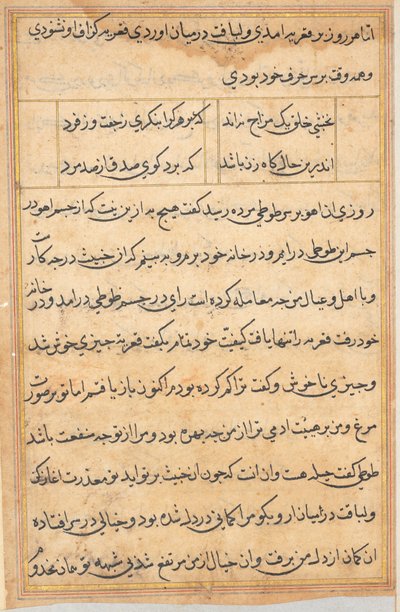 اما هر روز بر قمریه امدی و لباقت در میان اوردی قمریه کزاف او نشنودی
و همه وقت بر سر حرف خود بودی
نخشبی خلق یک مزاج نه‌اند که هر کرا بنکری ز جفت و ز فرد
اندرین حال کاه زن باشد که برد کوی صدق از صد مرد
روزی ان اهو بر سر طوطی مرده رسید کفت هیچ به ازین نیست که از جسم اهو در
جسم این طوطی در ایم و در خانه خود بروم و به بینم که ان خبیث در چه کار است
و با اهل و عیال من چه معامله کرده است رای در جسم طوطی درامد و در خانه
خود رفت قمریه را تنها یافت کیفیت خود تمام بکفت قمریه چیزی خوش شد
و چیزی ناخوش و کفت ترا کم کرده بودم اکنون باز یافتم اما تو بر صورت
مرغ و من بر هیئت ادمی ترا از من چه بهره بود و مرا از تو چه منفعت باشد
طوطی کفت حیله هست و ان انست که چون ان خبیث بر تو اید تو معذرت اغاز کن
و لباقت در میان ار و بکو مرا کمانی در دل شده بود و خیالی در سر افتاده
ان کمان از دل من برفت و ان خیال از من مرتفع شد بی شبهه تو همان مخدوم